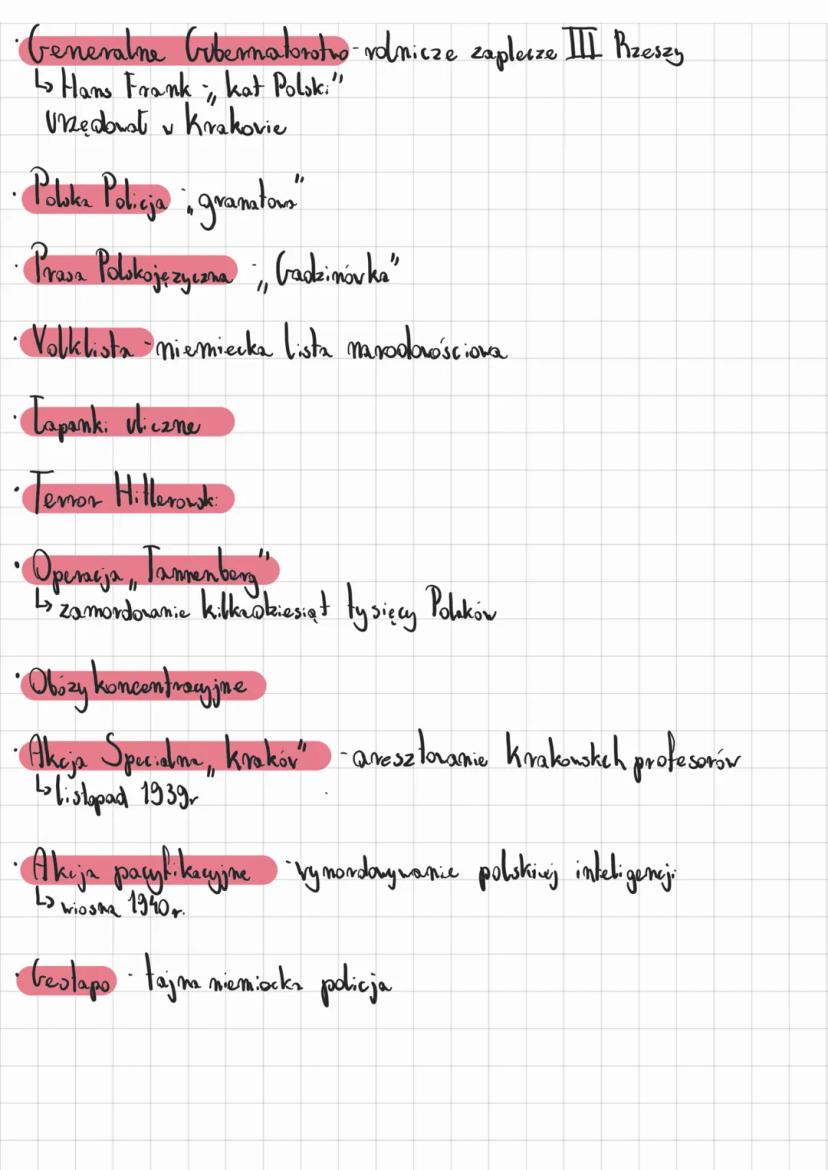 · Generalne Gubernatorstwo - rolnicze zaplecze III Rzeszy
↳ Hans Frank - „kat Polski"
Urzędował w Krakowie
· Polska Policja - „granatowa"
· Prasa Polskojęzyczna - „Gadzinówka"
· Volklista - niemiecka lista narodowościowa
· Łapanki uliczne
· Terror Hitlerowski
· Operacja „Tannenberg"
↳ zamordowanie kilkadziesiąt tysięcy Polaków
· Obozy koncentracyjne
· Akcja Specjalna „kraków" - aresztowanie krakowskch profesorów
↳ listopad 1939r
· Akcja pacyfikacyjne - wymordowywanie polskiej inteligencji
↳ wiosna 1940r.
· Gestapo - tajna niemiecka policja